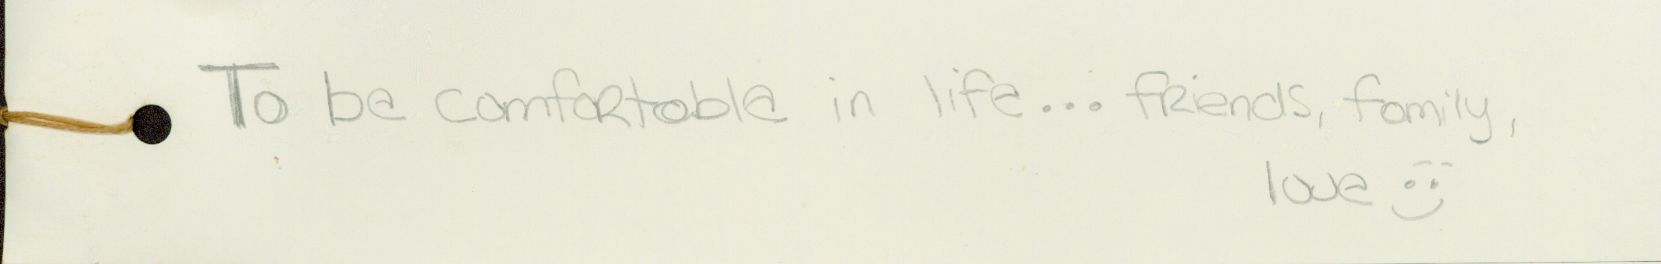 To be comfortable in life... friends, family,
love